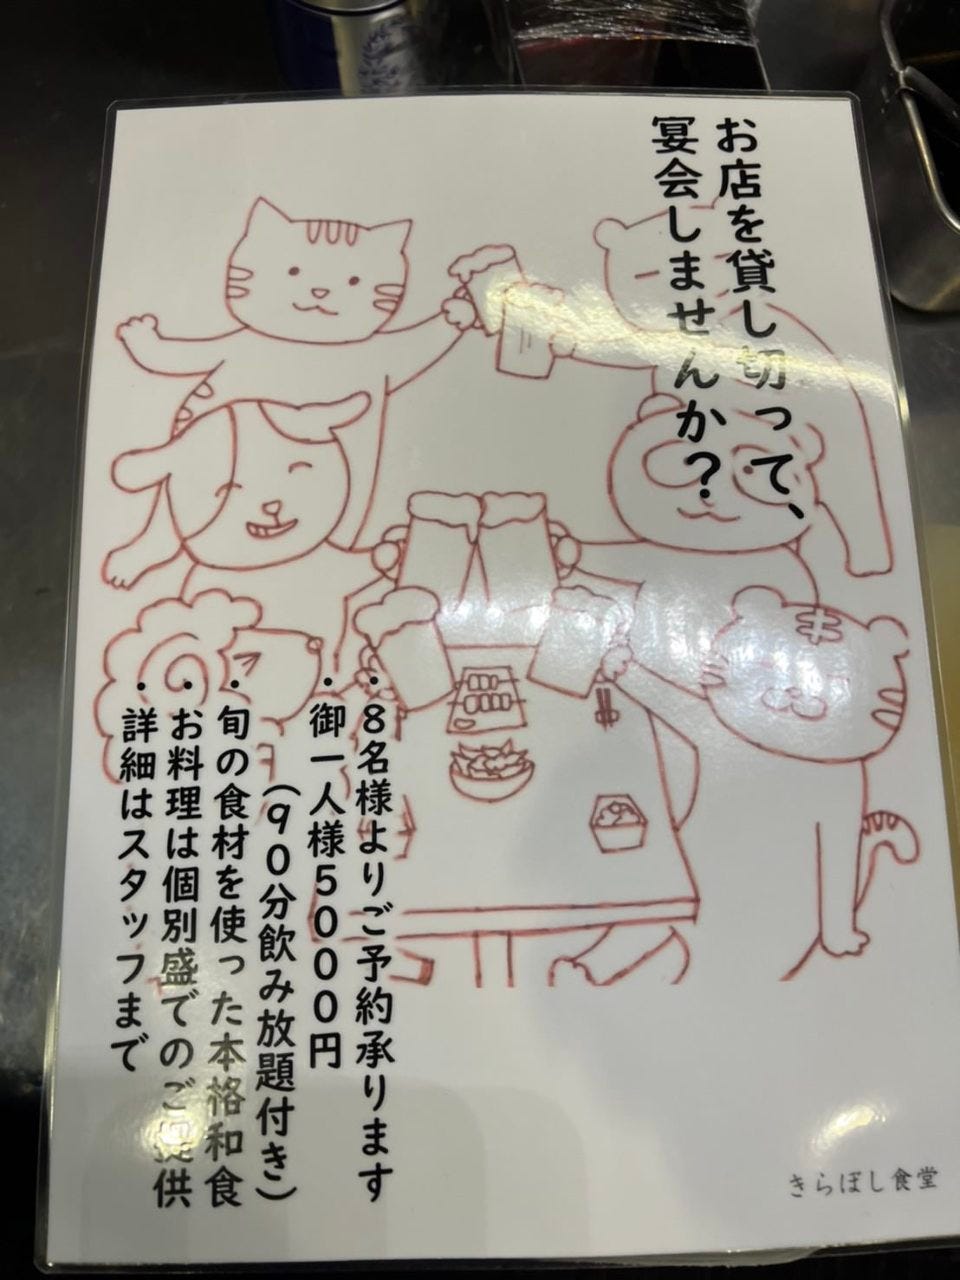 お店を貸し切って、
宴会しませんか？
・８名様よりご予約承ります
・御一人様５０００円
（９０分飲み放題付き）
・旬の食材を使った本格和食
・お料理は個別盛でのご提供
・詳細はスタッフまで
きらぼし食堂